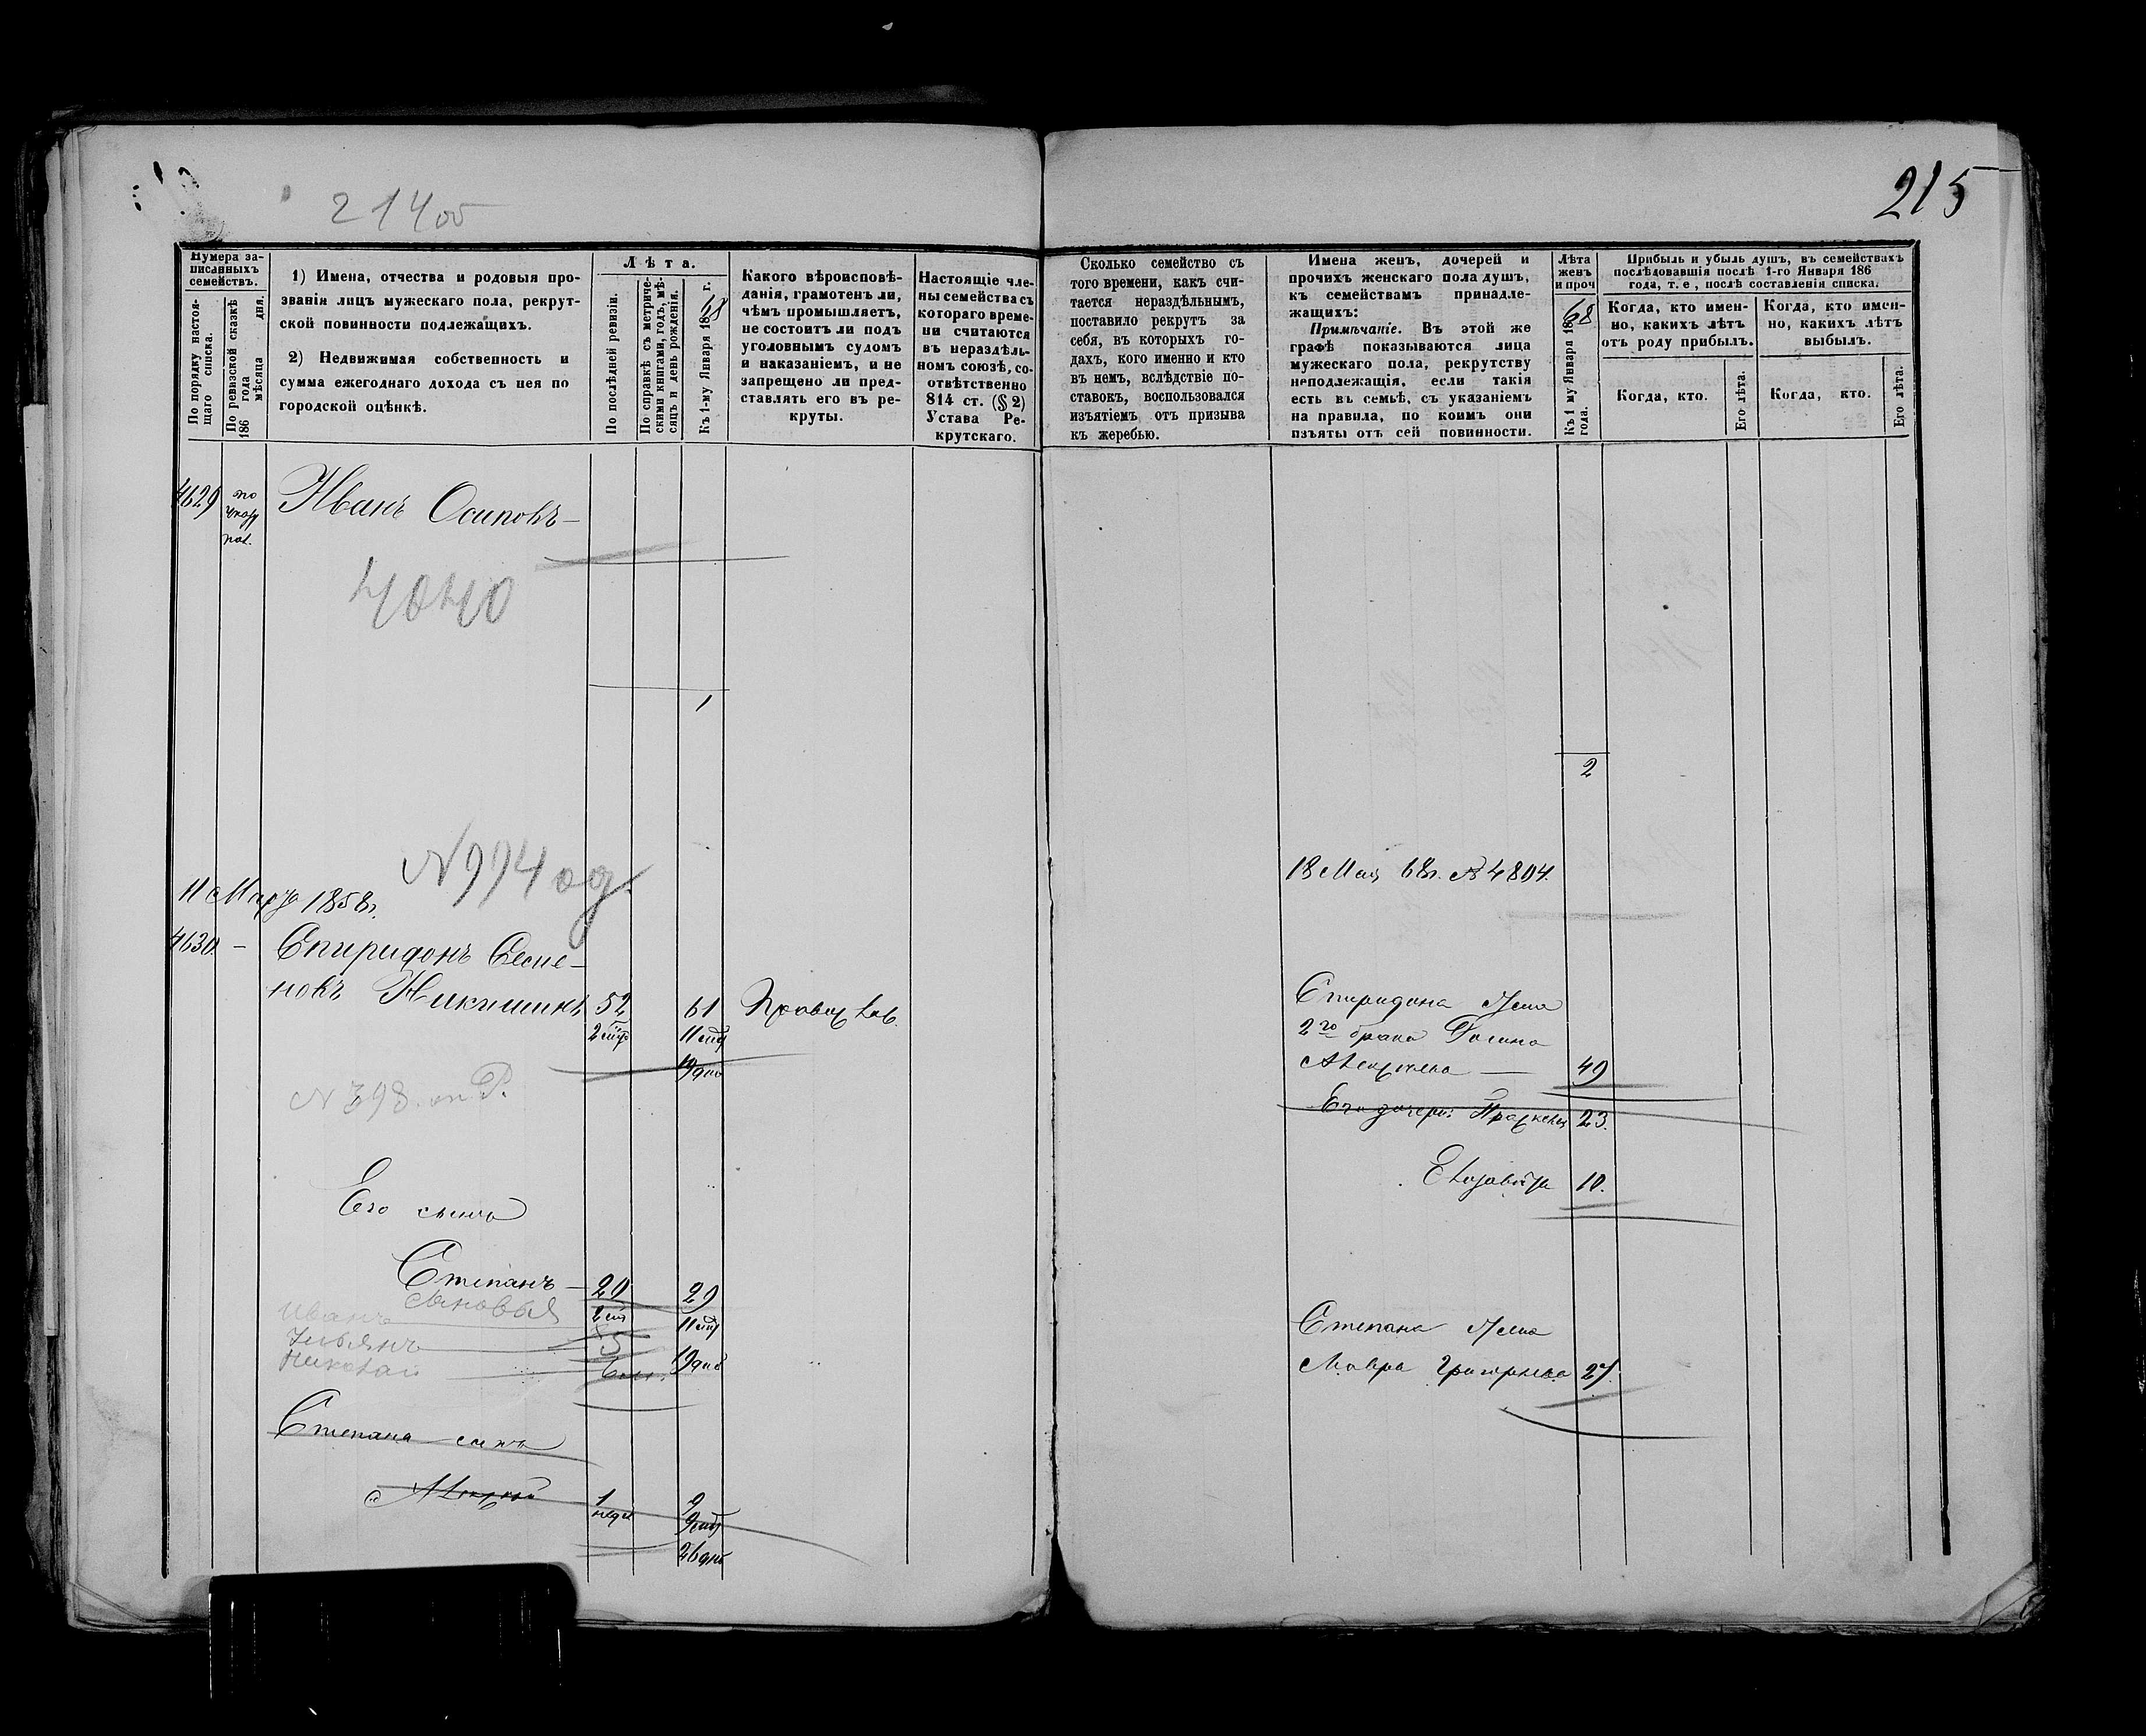 214об
215
Нумера за-
писанныхъ
семействъ.
По порядку настоя-
щаго списка.
По ревизской сказкѣ
186 года
мѣсяца дня.
1) Имена, отчества и родовыя про-
званія лицъ мужескаго пола, рекрут-
ской повинности подлежащихъ.
2) Недвижимая собственность и
сумма ежегоднаго дохода съ нея по
городской оцѣнкѣ.
Лѣта.
По послѣдней ревизіи.
По справкѣ съ метриче-
скими книгами, годъ, мѣ-
сяцъ и день рожденія.
Къ 1-му Января 1868 г.
Какого вѣроисповѣ-
данія, грамотенъ ли,
чѣмъ промышляетъ,
не состоитъ ли подъ
уголовнымъ судомъ
и наказаніемъ, и не
запрещено ли пред-
ставлять его въ ре-
круты.
Настоящіе чле-
ны семейства съ
котораго време-
ни считаются
въ нераздѣль-
номъ союзѣ, со-
отвѣтственно
814 ст. (§ 2)
Устава Ре-
крутскаго.
Сколько семейство съ
того времени, какъ счи-
тается нераздѣльнымъ,
поставило рекрутъ за
себя, въ которыхъ го-
дахъ, кого именно и кто
въ немъ, вслѣдствіе по-
ставокъ, воспользовался
изъятіемъ отъ призыва
къ жеребью.
Имена женъ, дочерей и
прочихъ женскаго пола душъ,
къ семействамъ принадле-
жащихъ:
Примѣчаніе. Въ этой же
графѣ показываются лица
мужескаго пола, рекрутству
неподлежащія, если такія
есть въ семьѣ, съ указаніемъ
на правила, по коимъ они
изъяты отъ сей повинности.
Лѣта
женъ
и проч
Къ 1 му Января 1868
года.
Прибыль и убыль душъ, въ семействахъ
послѣдовавшія послѣ 1-го Января 186
года, т. е, послѣ составленія списка.
Когда, кто имен-
но, какихъ лѣтъ
отъ роду прибылъ.
Когда, кто имен-
но, какихъ лѣтъ
выбылъ.
Когда, кто.
Его лѣта.
Когда, кто.
Его лѣта.
4629 по Иванъ Осиповъ
4040
1
2
N 994 од.
11 Марта 1858 г.
18 Мая 68 г. № 4804.
4630. Спиридонъ Семе-
новъ Никишинъ 52 61
Спиридона Жена
2го брака
49
N 398.
Его дочери: Прасковья 23.
Елизавета 10.
Его сынъ
Степанъ 20 29
сыновья
Иванъ
Ульянъ 5
Николай
Степана Жена
Мавра Григорьева 27.
Степана сынъ
Алексѣй 1 недѣ 9
26 дне